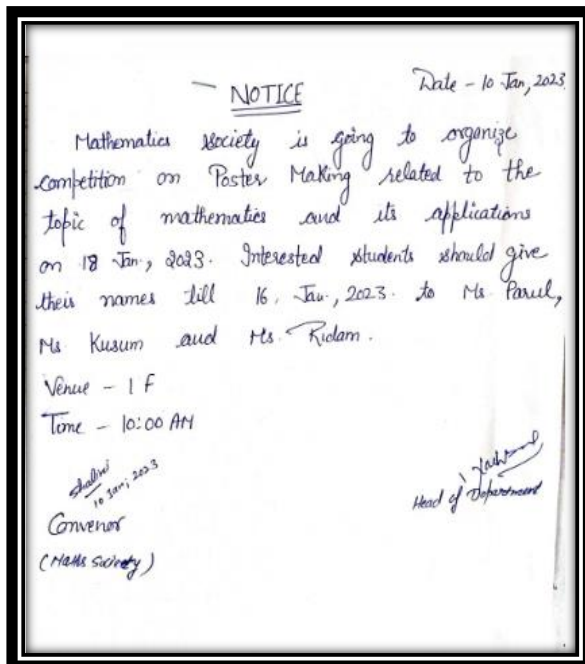 Date - 10 Jan, 2023.
NOTICE
Mathematics society is going to organize
competition on Poster Making related to the
topic of mathematics and its applications
on 18 Jan, 2023. Interested students should give
their names till 16, Jan., 2023. to Ms. Parul,
Ms Kusum and Ms. Ridam.
Venue - 1 F
Time - 10:00 AM
Shalini
10 Jan, 2023
Head of Department
Convenor
(Maths Society)